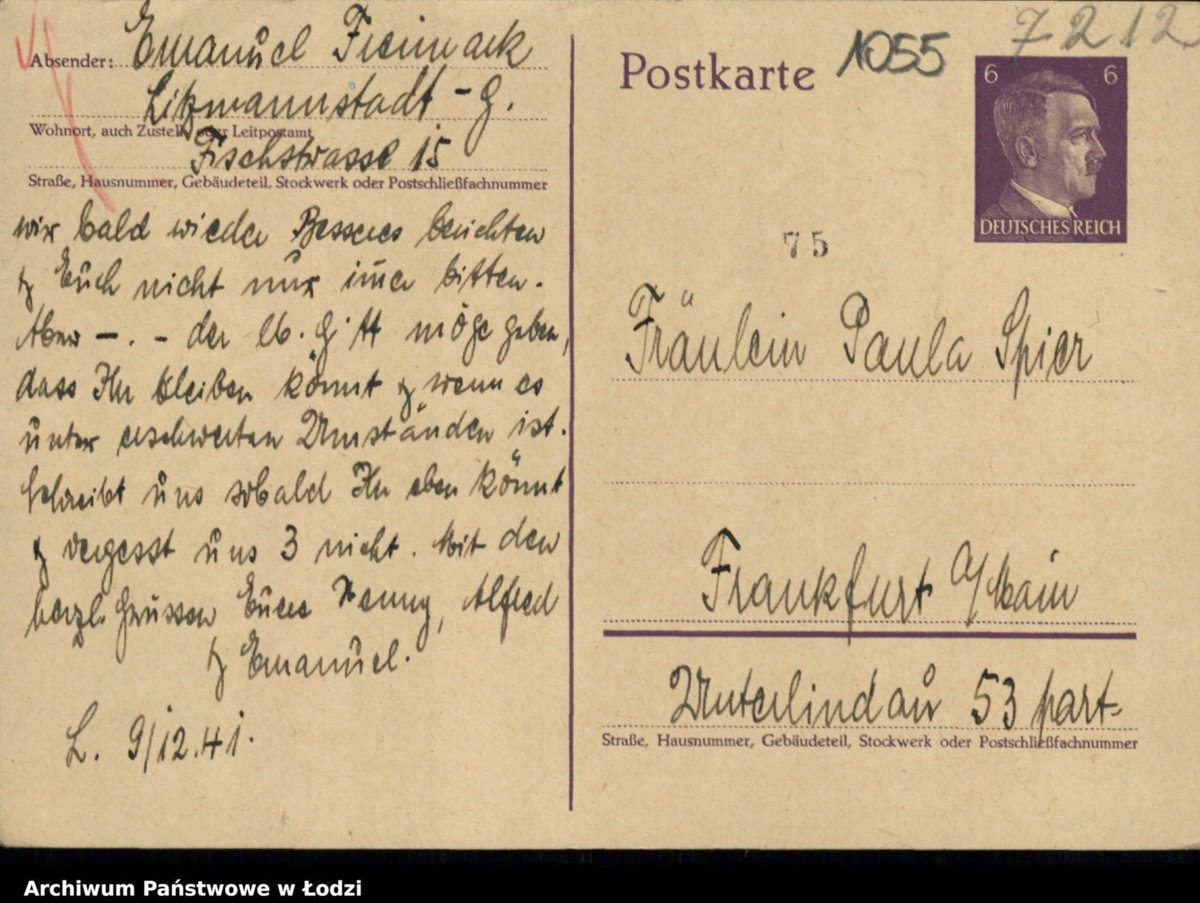 Absender: Emanuel Freimark
Litzmannstadt - G.
Wohnort, auch Zustell- oder Leitpostamt
Fischstrasse 15
Straße, Hausnummer, Gebäudeteil, Stockwerk oder Postschließfachnummer
wir bald wieder Besseres berichten
& Euch nicht nur imer bitten.
Aber - . - der lb. G'tt möge geben,
dass Ihr bleiben könnt & wenn es
unter erschwerten Umständen ist.
Schreibt uns sobald Ihr eben könnt
& vergesst uns 3 nicht. Mit den
herzl. Grüssen Eure Henny, Alfred
& Emanuel.
L. 9/12.41.
Postkarte
1055
7212
6 6
DEUTSCHES REICH
75
Fräulein Paula Spier
Frankfurt a/Main
Unterlindau 53 part.
Straße, Hausnummer, Gebäudeteil, Stockwerk oder Postschließfachnummer
Archiwum Państwowe w Łodzi